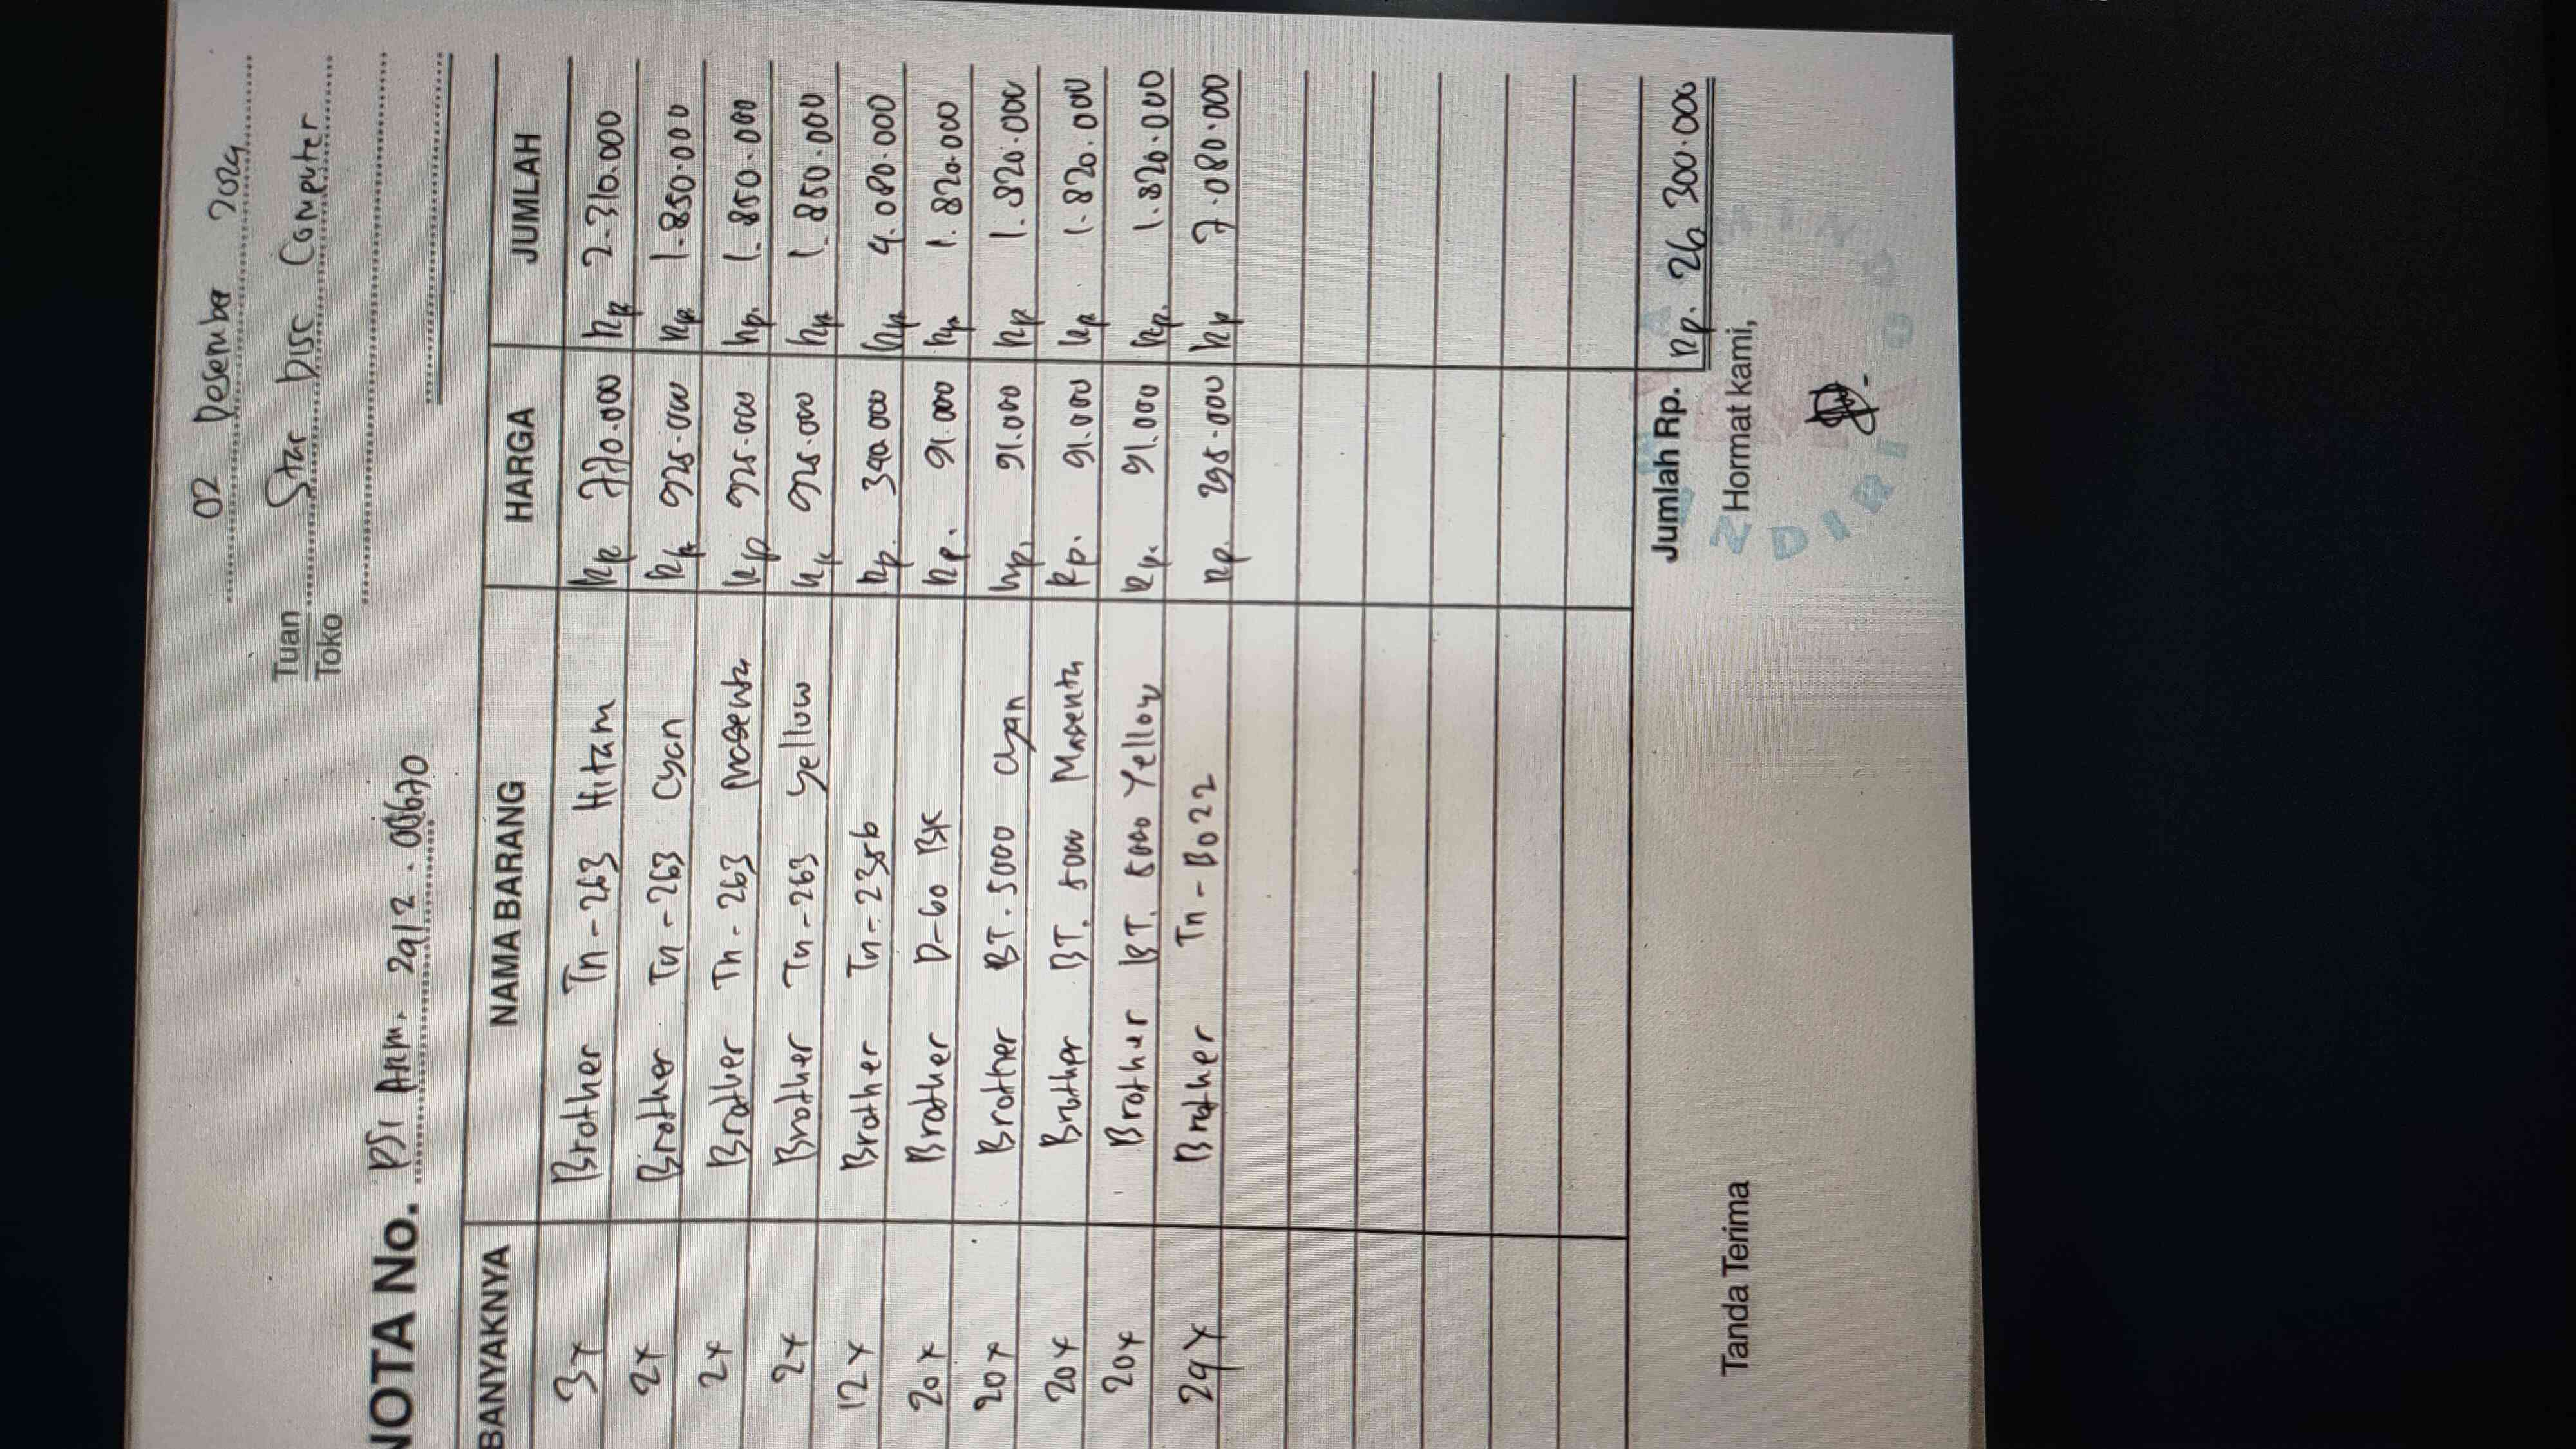 02 Desember 2024
Tuan Star Disc Computer
Toko
NOTA No. PSI ARM. 2412.00670
BANYAKNYA NAMA BARANG HARGA JUMLAH
3x Brother Tn-263 Hitam Rp 770.000 Rp 2.310.000
2x Brother Tn-263 Cyan Rp 925.000 Rp 1.850.000
2x Brother Tn-263 Magenta Rp 925.000 Rp. 1.850.000
2x Brother Tn-263 Yellow Rp 925.000 Rp 1.850.000
12x Brother Tn-2356 Rp. 340.000 Rp 4.080.000
20x Brother D-60 BK Rp. 91.000 Rp 1.820.000
20x Brother BT.5000 Cyan Rp. 91.000 Rp 1.820.000
20x Brother BT.5000 Magenta Rp. 91.000 Rp 1.820.000
20x Brother BT.5000 Yellow Rp. 91.000 Rp. 1.820.000
24x Brother Tn-B022 Rp. 295.000 Rp 7.080.000
Jumlah Rp. Rp. 26 300.000
Tanda Terima Hormat kami,